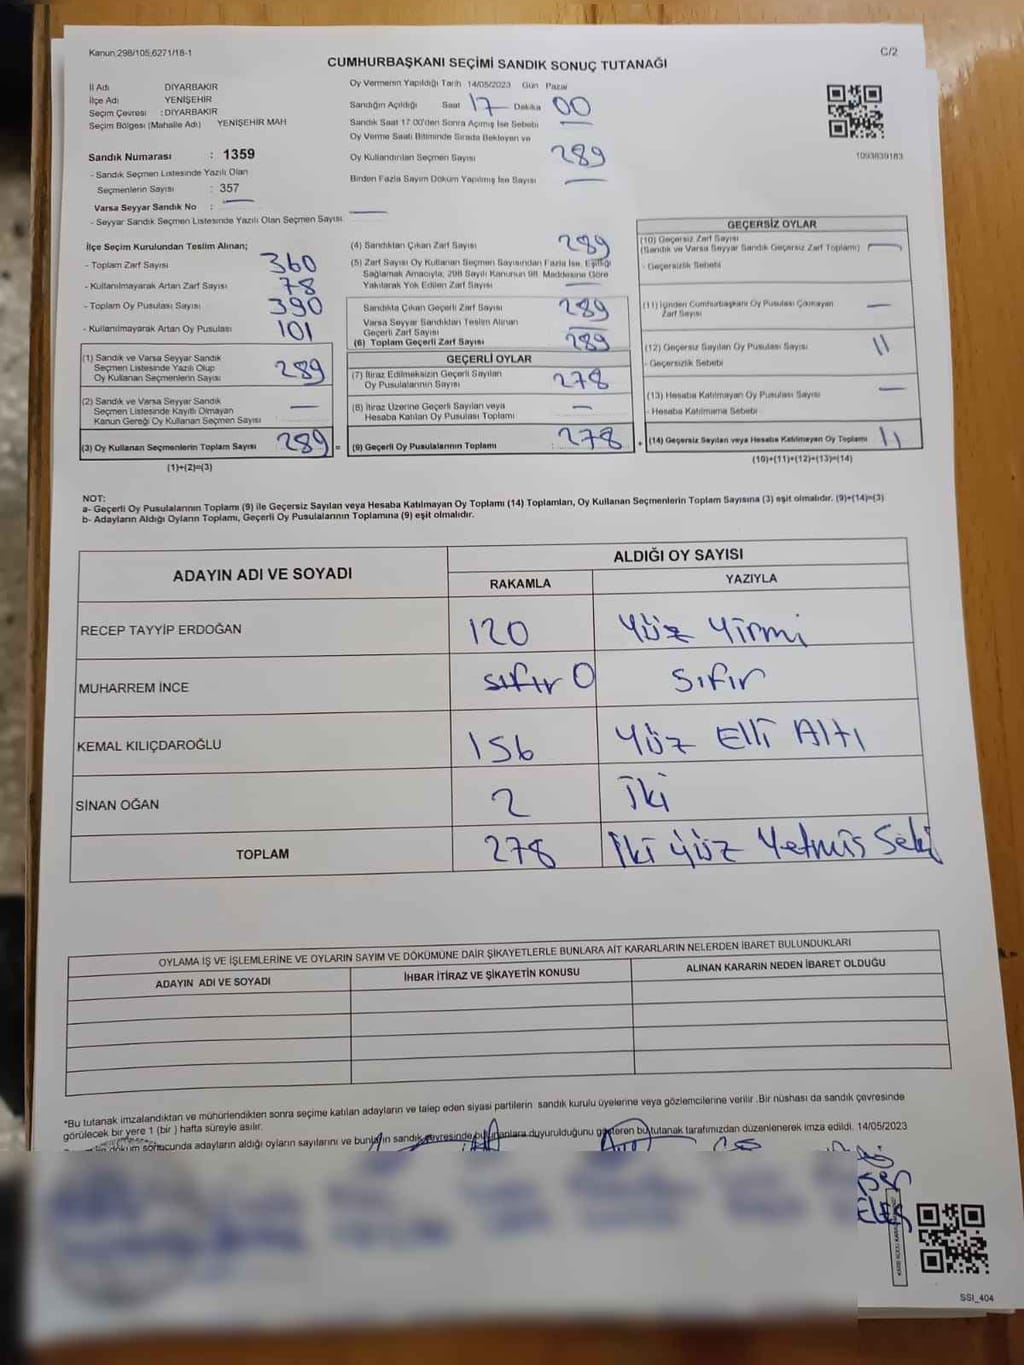 Kanun.298/105,6271/18-1
C/2
CUMHURBAŞKANI SEÇİMİ SANDIK SONUÇ TUTANAĞI
İl Adı DİYARBAKIR
İlçe Adı YENİŞEHİR
Seçim Çevresi : DİYARBAKIR
Seçim Bölgesi (Mahalle Adı) YENİŞEHİR MAH
Sandık Numarası : 1359
- Sandık Seçmen Listesinde Yazılı Olan
Seçmenlerin Sayısı : 357
Varsa Seyyar Sandık No :
- Seyyar Sandık Seçmen Listesinde Yazılı Olan Seçmen Sayısı
Oy Vermenin Yapıldığı Tarih 14/05/2023 Gün Pazar
Sandığın Açıldığı Saat 17 Dakika 00
Sandık Saat 17 00'den Sonra Açılmış İse Sebebi
Oy Verme Saati Bitiminde Sırada Bekleyen ve
Oy Kullandırılan Seçmen Sayısı 289
Birden Fazla Sayım Döküm Yapılmış İse Sayısı
1093839183
İlçe Seçim Kurulundan Teslim Alınan;
- Toplam Zarf Sayısı 360
- Kullanılmayarak Artan Zarf Sayısı 78
- Toplam Oy Pusulası Sayısı 390
- Kullanılmayarak Artan Oy Pusulası 101
(1) Sandık ve Varsa Seyyar Sandık
Seçmen Listesinde Yazılı Olup
Oy Kullanan Seçmenlerin Sayısı 289
(2) Sandık ve Varsa Seyyar Sandık
Seçmen Listesinde Kayıtlı Olmayan
Kanun Gereği Oy Kullanan Seçmen Sayısı —
(3) Oy Kullanan Seçmenlerin Toplam Sayısı 289 =
(1)+(2)=(3)
(4) Sandıktan Çıkan Zarf Sayısı 289
(5) Zarf Sayısı Oy Kullanan Seçmen Sayısından Fazla İse, Eşitliği
Sağlamak Amacıyla, 298 Sayılı Kanunun 98. Maddesine Göre
Yakılarak Yok Edilen Zarf Sayısı —
Sandıkta Çıkan Geçerli Zarf Sayısı 289
Varsa Seyyar Sandıktan Teslim Alınan
Geçerli Zarf Sayısı —
(6) Toplam Geçerli Zarf Sayısı 289
GEÇERLİ OYLAR
(7) İtiraz Edilmeksizin Geçerli Sayılan
Oy Pusulalarının Sayısı 278
(8) İtiraz Üzerine Geçerli Sayılan veya
Hesaba Katılan Oy Pusulası Toplamı —
(9) Geçerli Oy Pusulalarının Toplamı 278 +
GEÇERSİZ OYLAR
(10) Geçersiz Zarf Sayısı
(Sandık ve Varsa Seyyar Sandık Geçersiz Zarf Toplamı) —
- Geçersizlik Sebebi
(11) İçinden Cumhurbaşkanı Oy Pusulası Çıkmayan
Zarf Sayısı —
(12) Geçersiz Sayılan Oy Pusulası Sayısı 11
- Geçersizlik Sebebi
(13) Hesaba Katılmayan Oy Pusulası Sayısı —
- Hesaba Katılmama Sebebi
(14) Geçersiz Sayılan veya Hesaba Katılmayan Oy Toplamı 11
(10)+(11)+(12)+(13)=(14)
NOT:
a- Geçerli Oy Pusulalarının Toplamı (9) ile Geçersiz Sayılan veya Hesaba Katılmayan Oy Toplamı (14) Toplamları, Oy Kullanan Seçmenlerin Toplam Sayısına (3) eşit olmalıdır. (9)+(14)=(3)
b- Adayların Aldığı Oyların Toplamı, Geçerli Oy Pusulalarının Toplamına (9) eşit olmalıdır.
ADAYIN ADI VE SOYADI ALDIĞI OY SAYISI
RAKAMLA YAZIYLA
RECEP TAYYİP ERDOĞAN 120 Yüz Yirmi
MUHARREM İNCE sıfır 0 Sıfır
KEMAL KILIÇDAROĞLU 156 Yüz Elli Altı
SİNAN OĞAN 2 İki
TOPLAM 278 İki Yüz Yetmiş Seki
OYLAMA İŞ VE İŞLEMLERİNE VE OYLARIN SAYIM VE DÖKÜMÜNE DAİR ŞİKAYETLERLE BUNLARA AİT KARARLARIN NELERDEN İBARET BULUNDUKLARI
ADAYIN ADI VE SOYADI İHBAR İTİRAZ VE ŞİKAYETİN KONUSU ALINAN KARARIN NEDEN İBARET OLDUĞU
*Bu tutanak imzalandıktan ve mühürlendikten sonra seçime katılan adayların ve talep eden siyasi partilerin sandık kurulu üyelerine veya gözlemcilerine verilir .Bir nüshası da sandık çevresinde
görülecek bir yere 1 (bir ) hafta süreyle asılır.
döküm sonucunda adayların aldığı oyların sayılarını ve bunların sandık çevresinde bulunanlara duyurulduğunu gösteren bu tutanak tarafımızdan düzenlenerek imza edildi. 14/05/2023
SSI_404